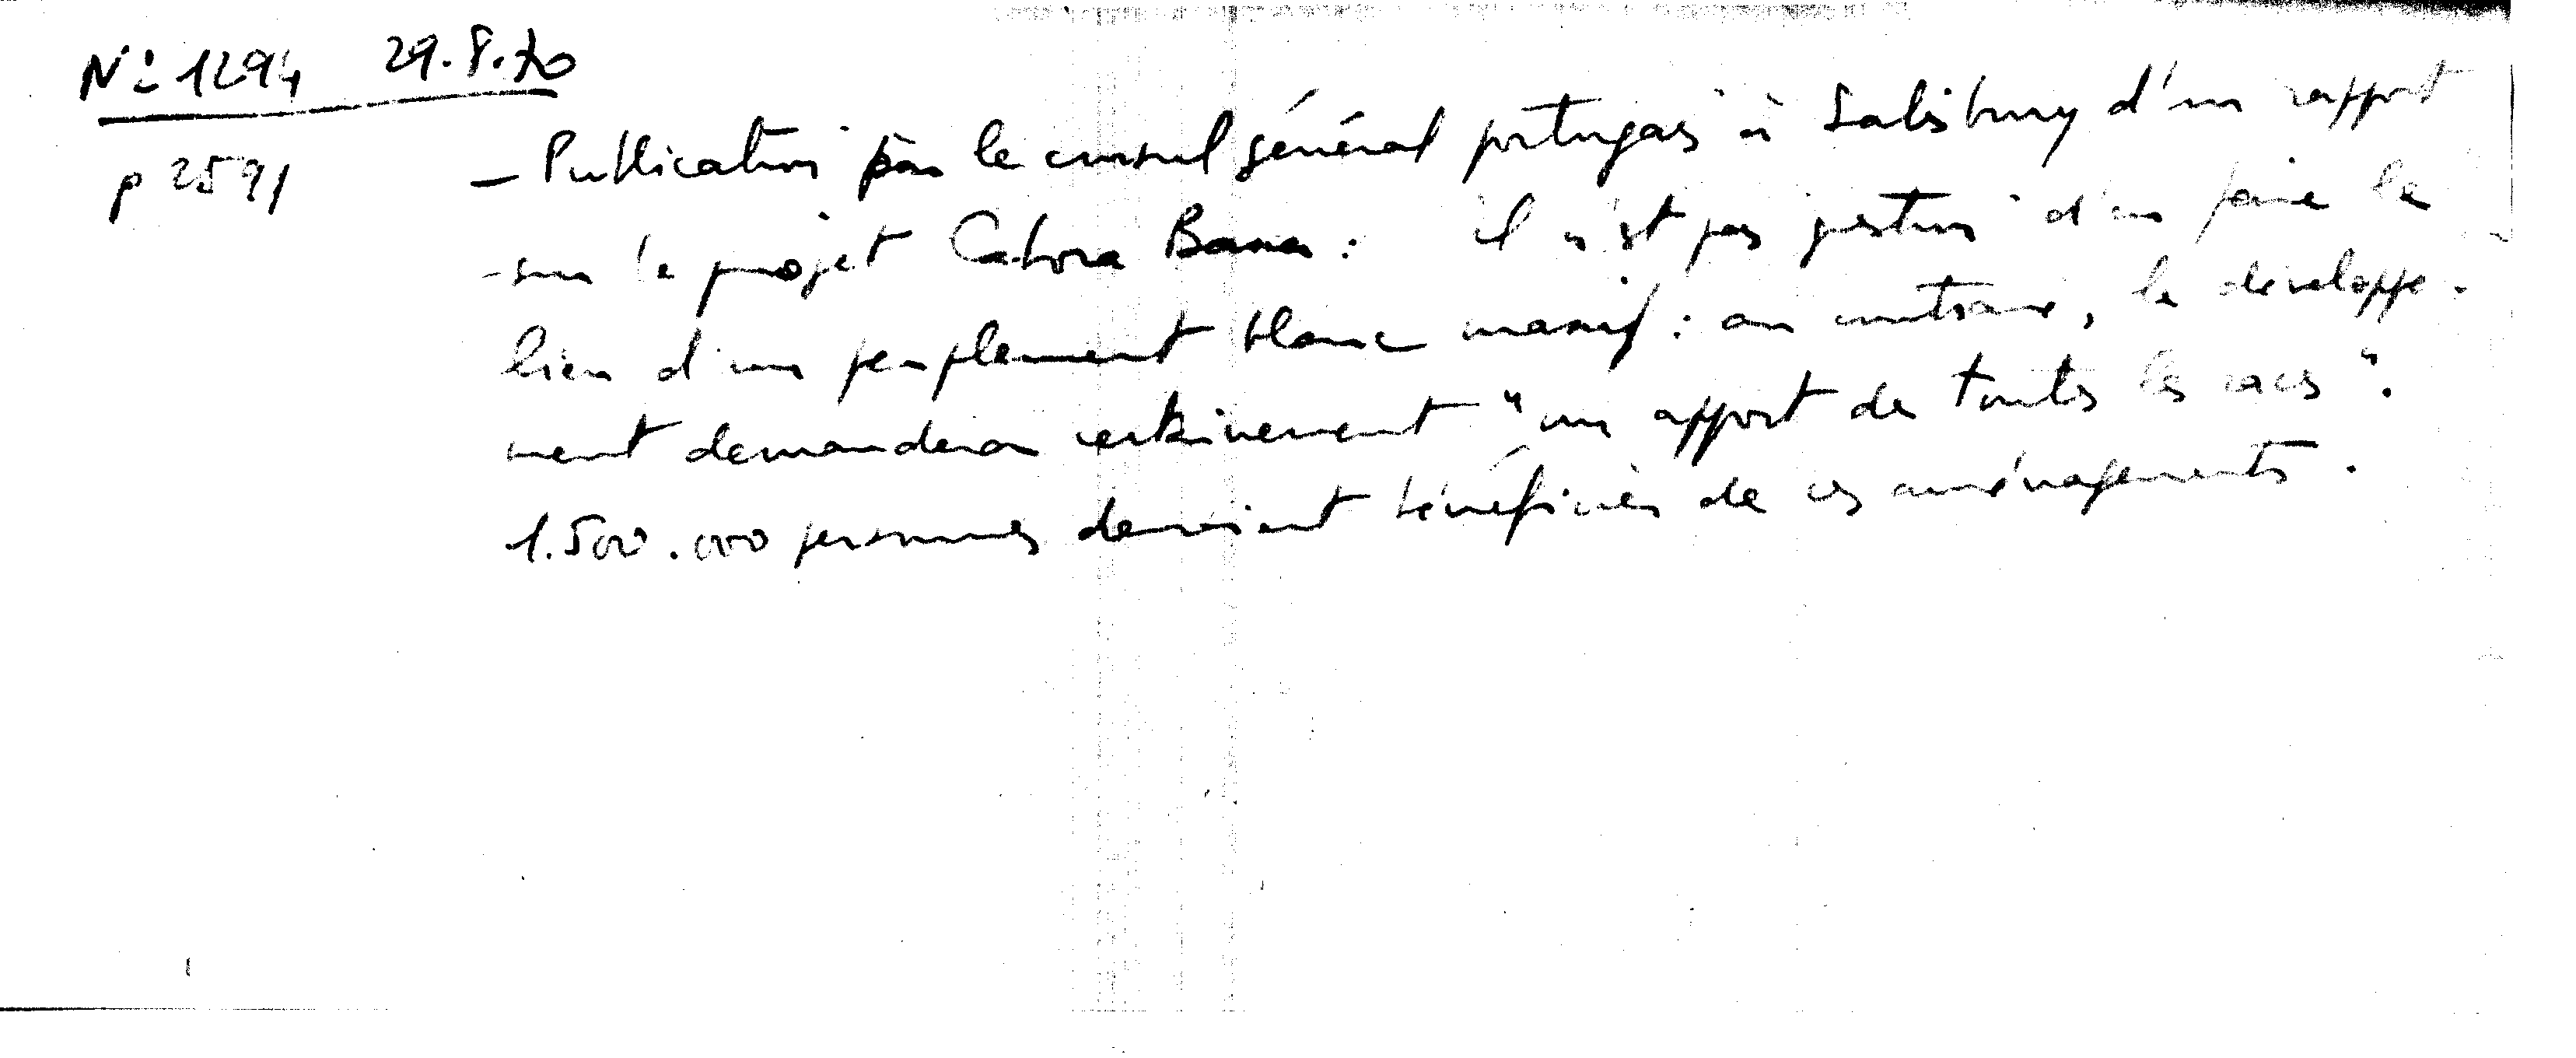 N° 1294 29.8.70
p 2591
- Publication par le consul général portugais à Salisbury d'un rapport
sur le projet Cabora Bassa : il n'est pas question d'en faire le
lieu d'un peuplement blanc massif : au contraire, le développe-
ment demandera certainement "un apport de toutes les races".
1.500.000 personnes devraient bénéficier de ces aménagements.